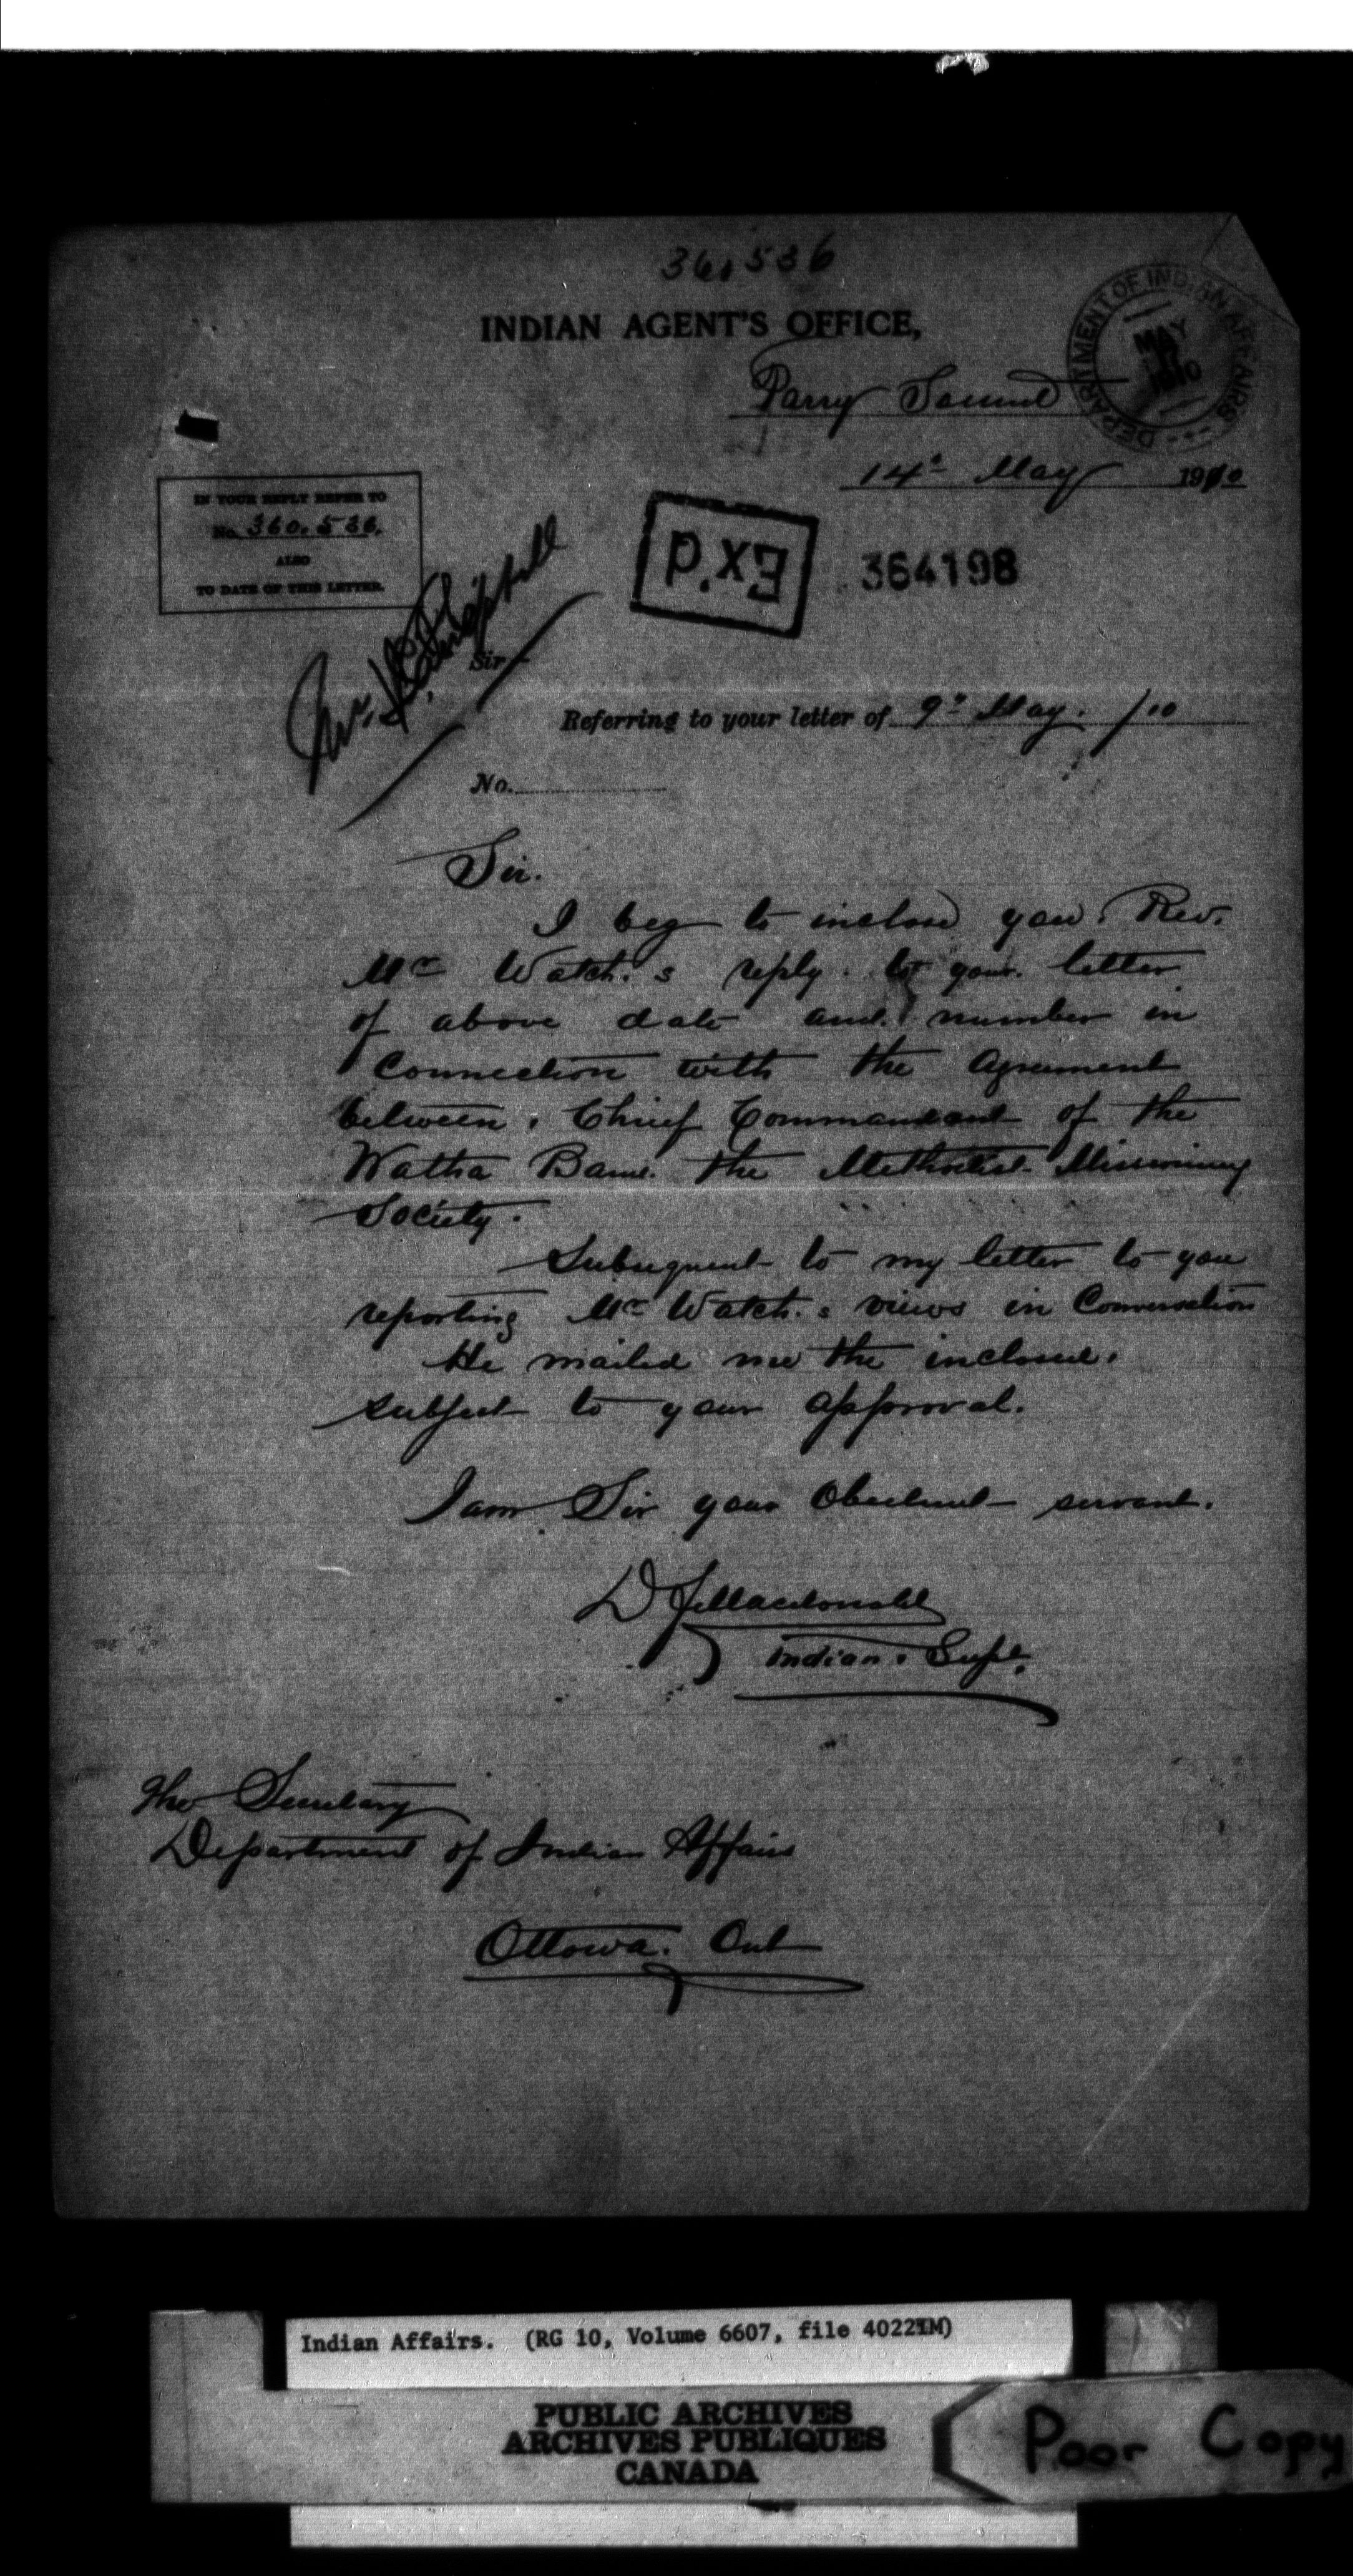 361536
INDIAN AGENT'S OFFICE,
DEPARTMENT OF INDIAN AFFAIRS
MAY
1910
Parry Sound
14th May 1910
IN YOUR REPLY REFER TO
No. 360.536.
ALSO
TO DATE OF THIS LETTER.
Ex'd
364198
Mr.
Sir,
Referring to your letter of 9th May. /10
No.
Sir.
I beg to inclose you. Rev.
Mr Watch.s reply. to your. letter
of above date and number in
Connection with the agreement
between. Chief Commandant of the
Watha Band. the Methodist Missionary
Society.
Subsequent to my letter to you
reporting Mr Watch.s views in Conversation
He mailed me the inclosed.
subject to your approval.
I am Sir your Obedient servant.
D F Macdonald
Indian. Supt.
The Secretary
Department of Indian Affairs
Ottowa. Ont
Indian Affairs. (RG 10, Volume 6607, file 4022-1M)
PUBLIC ARCHIVES
ARCHIVES PUBLIQUES
CANADA
Poor Copy